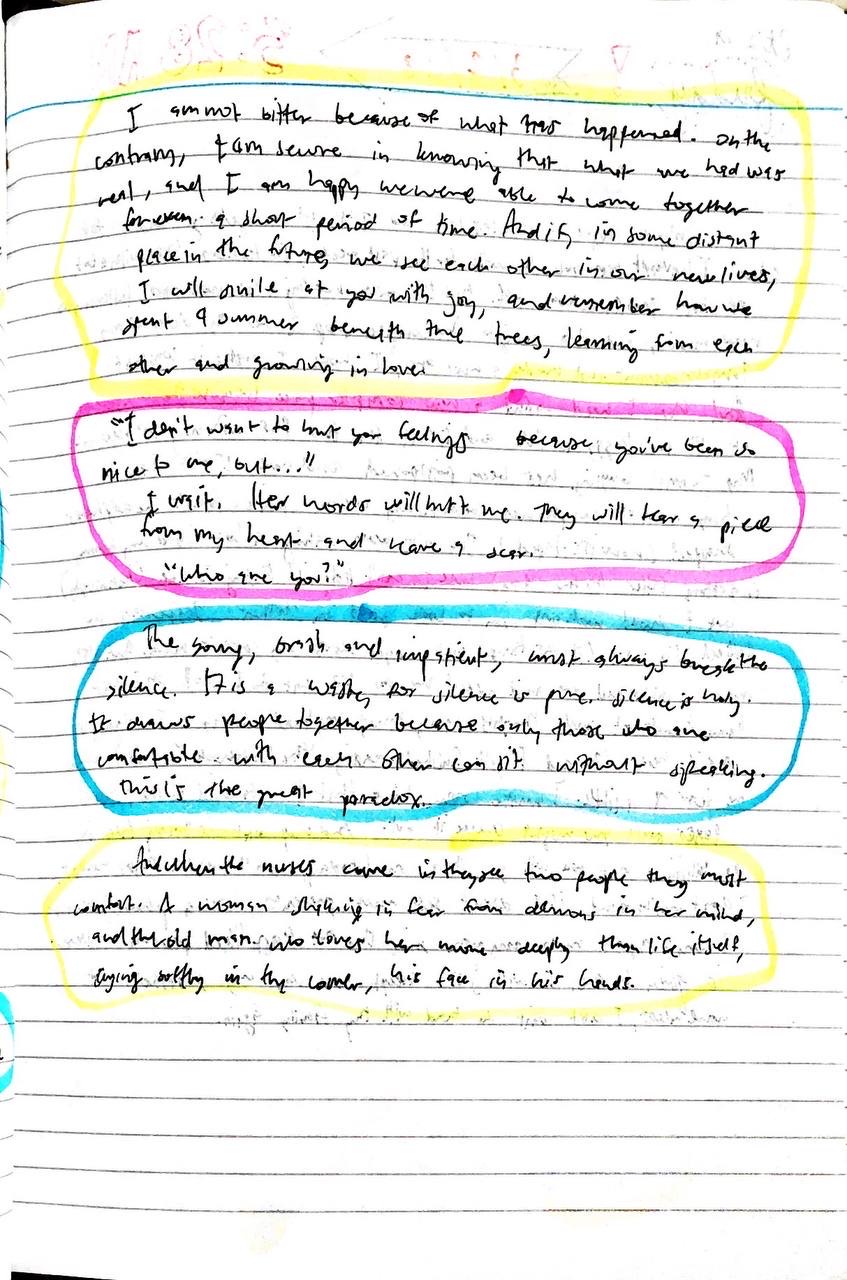 I am not bitter because of what has happened. On the
contrary, I am secure in knowing that what we had was
real, and I am happy we were able to come together
for even a short period of time. And if, in some distant
place in the future, we see each other in our new lives,
I will smile at you with joy, and remember how we
spent a summer beneath the trees, learning from each
other and growing in love.
"I don't want to hurt your feelings because you've been so
nice to me, but..."
I wait. Her words will hurt me. They will tear a piece
from my heart and leave a scar.
"Who are you?"
The young, brash and impatient, must always break the
silence. It is a waste, for silence is pure. Silence is holy.
It draws people together because only those who are
comfortable with each other can sit without speaking.
This is the great paradox.
And when the nurses come in they see two people they must
comfort. A woman shaking in fear from demons in her mind,
and the old man who loves her more deeply than life itself,
crying softly in the corner, his face in his hands.